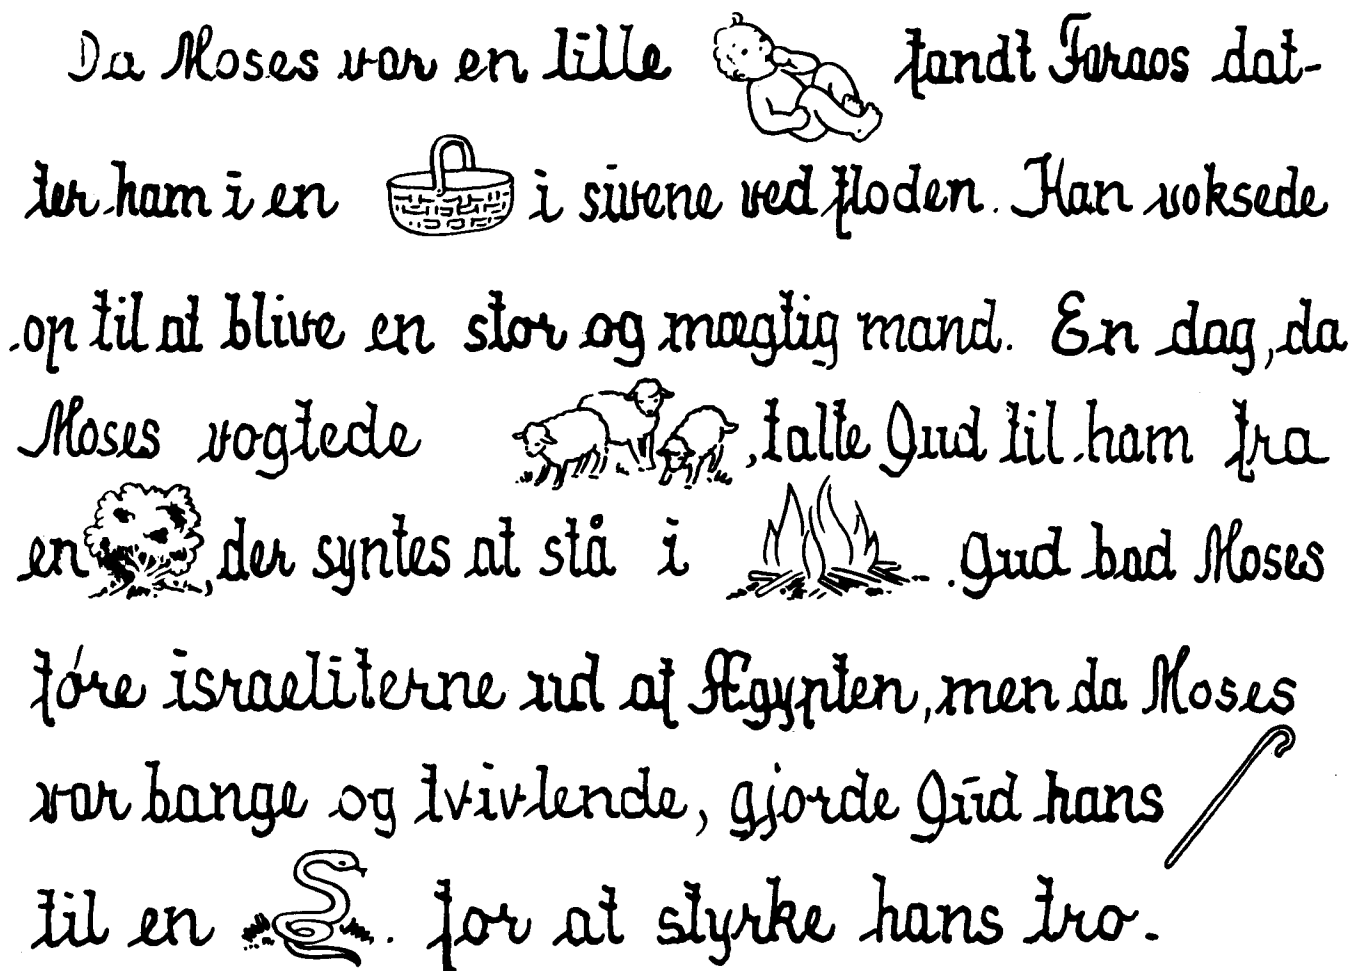 Da Moses var en lille fandt Faraos dat-
ter ham i en i sivene ved floden. Han voksede
op til at blive en stor og mægtig mand. En dag, da
Moses vogtede , talte Gud til ham fra
en , der syntes at stå i . Gud bad Moses
føre israeliterne ud af Ægypten, men da Moses
var bange og tvivlende, gjorde Gud hans
til en . for at styrke hans tro.